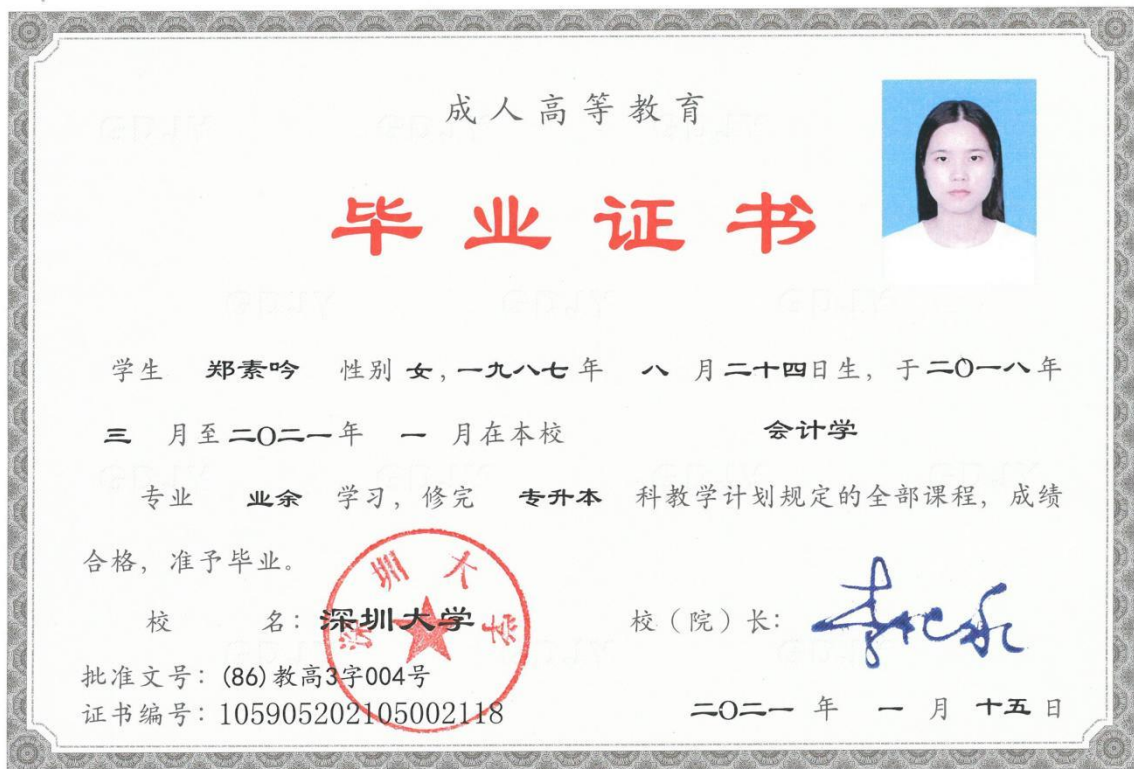 成人高等教育
毕业证书
学生 郑素吟 性别 女,一九八七年 八 月二十四日生,于二〇一八年
三 月至二〇二一年 一 月在本校 会计学
专业 业余 学习,修完 专升本 科教学计划规定的全部课程,成绩
合格,准予毕业。
深圳大学
校 名:深圳大学 校(院)长:
批准文号:(86)教高3字004号
证书编号:105905202105002118 二〇二一 年 一 月 十五 日